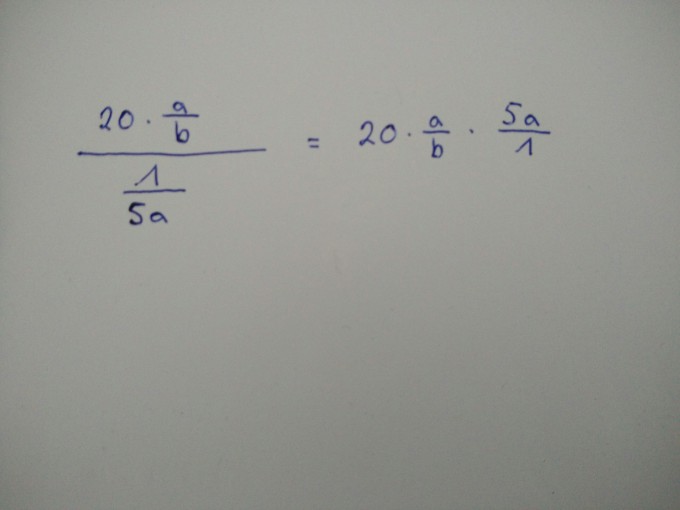 20 · a/b / 1/5a = 20 · a/b · 5a/1